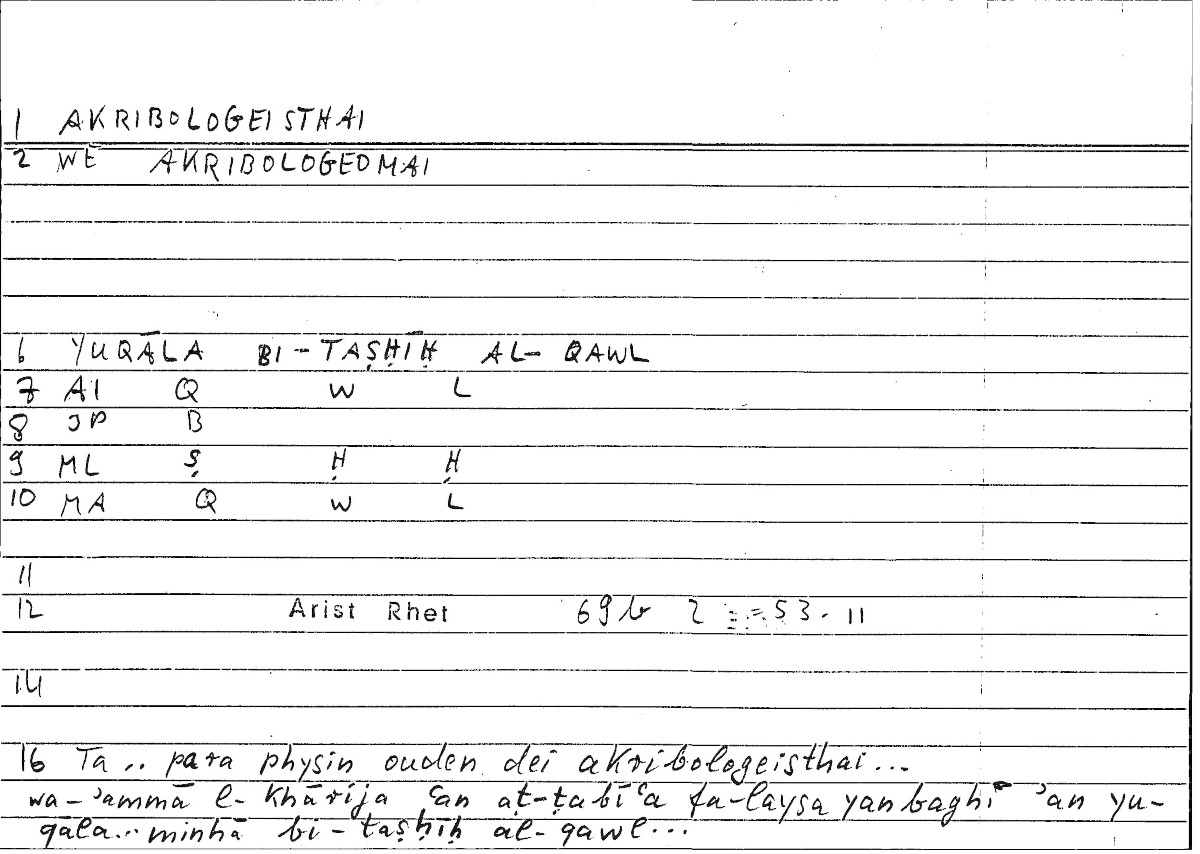 1 AKRIBOLOGEISTHAI
2 WE AKRIBOLOGEOMAI
6 YUQĀLA BI-TAṢḤĪḤ AL-QAWL
7 AI Q W L
8 JP B
9 ML Ṣ Ḥ Ḥ
10 MA Q W L
11
12 Arist Rhet 69b 2 = 53.11
14
16 Ta .. para physin ouden dei akribologeisthai...
wa-ʾammā l-khārija ʿan aṭ-ṭabīʿa fa-laysa yanbaghī ʾan yu-
qāla... minhā bi-taṣḥīḥ al-qawl...